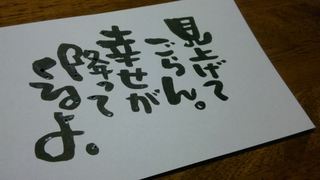 見上げて
ごらん。
幸せが
降って
くるよ。